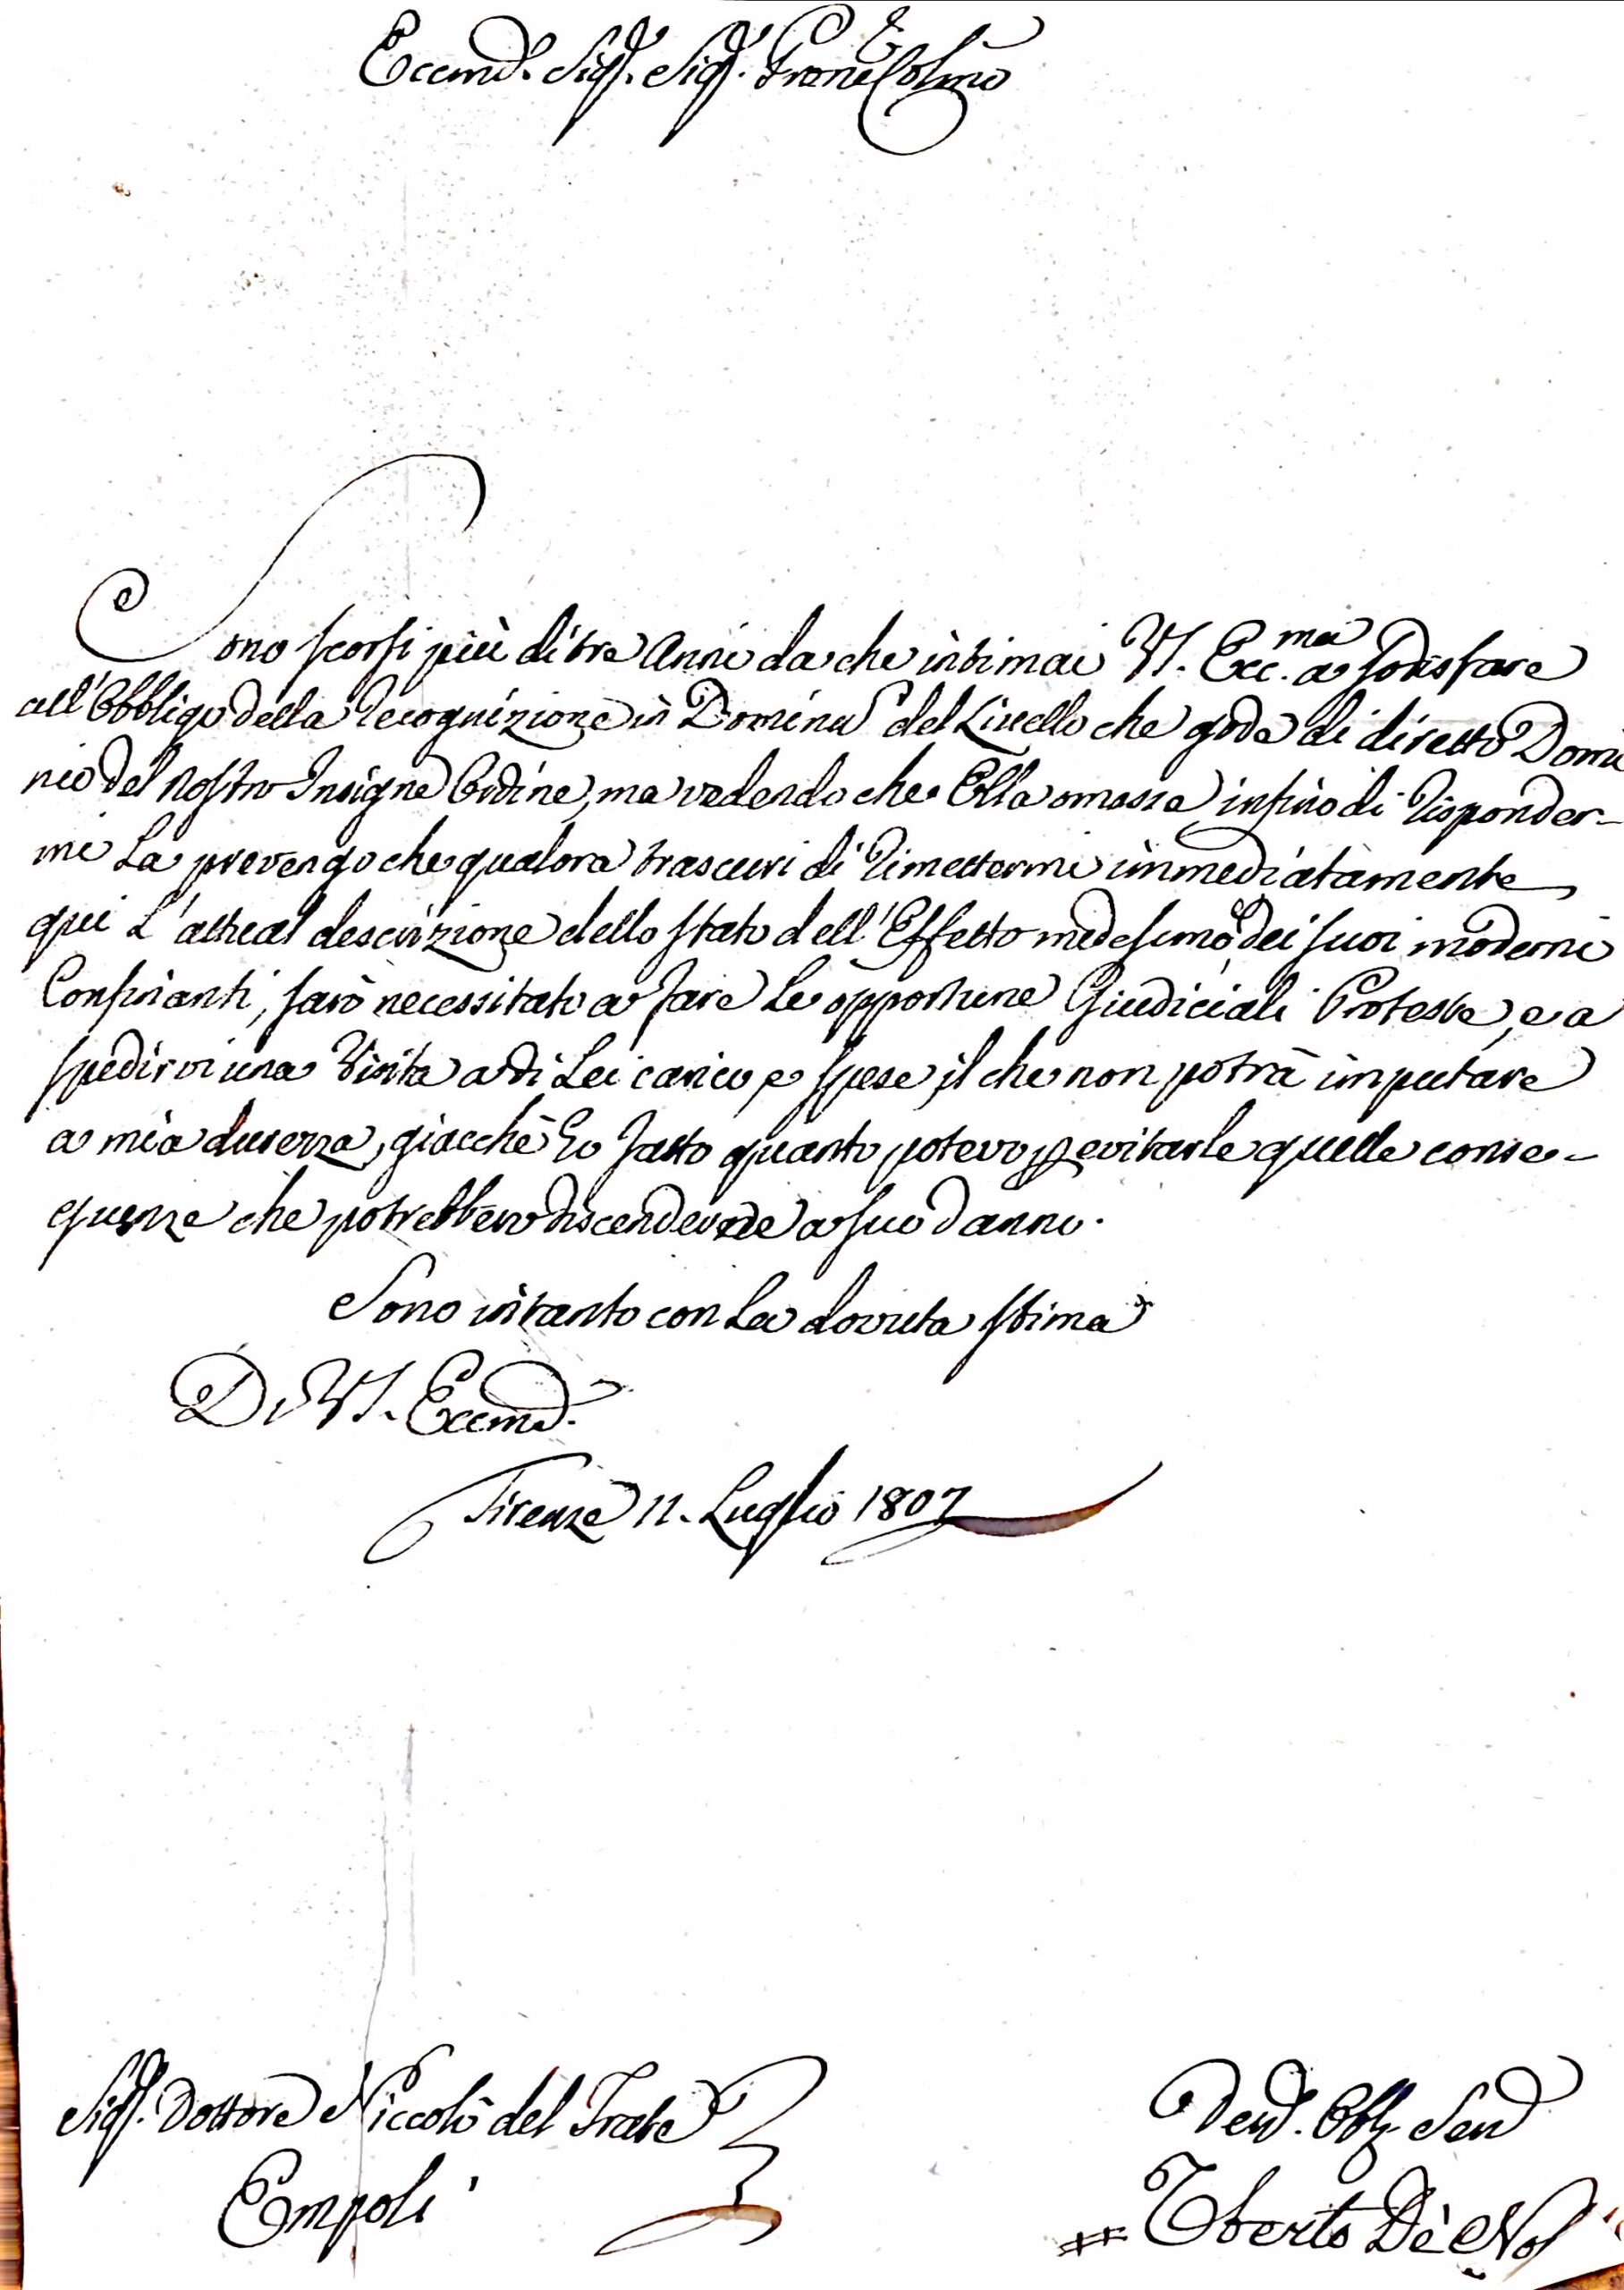 Eccmo. Sigr. Sigr. Prone Colmo
Sono scorsi più di tre Anni da che intimai VS. Ecc.ma a sodisfare
all'Obbligo della Recognizione in Dominu del Livello che gode di diretto Domi
nio del Nostro Insigne Ordine, ma vedendo che Ella omesse infino di Risponder-
mi La prevengo che qualora trascuri di Rimettermi immediatamente
qui L' attual descrizione dello stato dell'Effetto medesimo, e dei suoi moderni
Confinanti, sarò necessitato a fare Le opportune Giudiciali Proteste, e a
spedirvi una Visita a di Lei carico e spese, il che non potrà imputare
a mia durezza, giacchè ho fatto quanto potevo p evitarle quelle conse-
guenze che potrebbero discenderne a suo danno.
Sono intanto con La dovuta stima
Di VS. Eccma.
Firenze 11. Luglio 1807
Sigr. Dottore Niccolò del Frate
Empoli
Devo. Obb. Serv
Uberto De' Nob